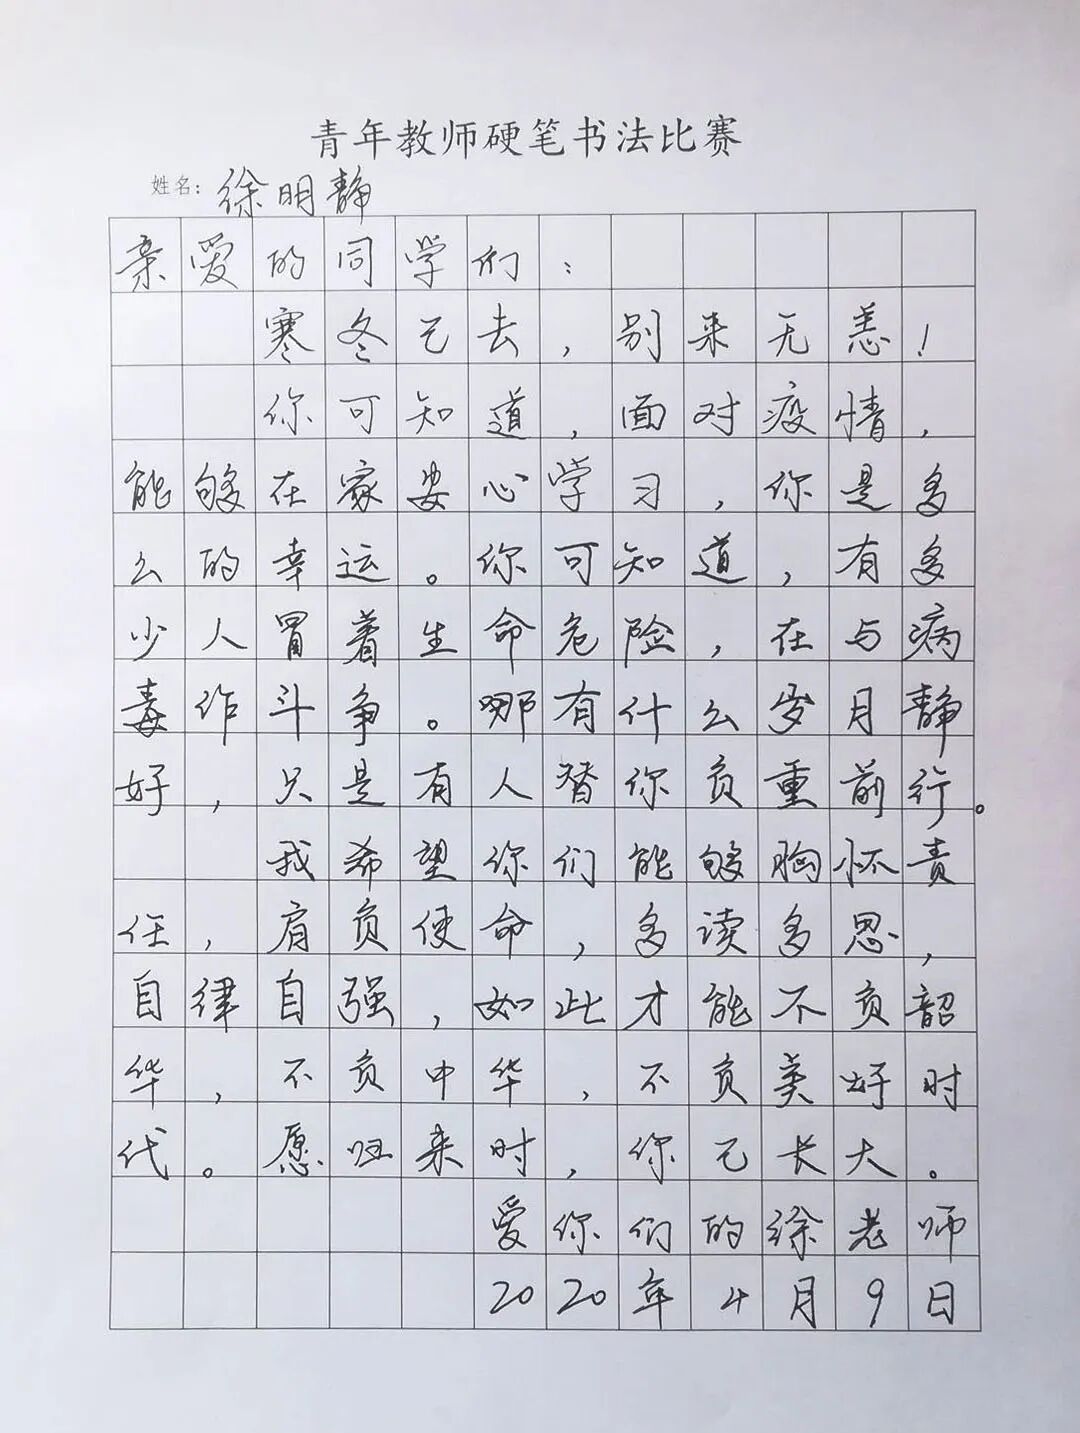 青年教师硬笔书法比赛
姓名：徐明静
亲爱的同学们：
寒冬已去，别来无恙！
你可知道，面对疫情，
能够在家安心学习，你是多
么的幸运。你可知道，有多
少人冒着生命危险，在与病
毒作斗争。哪有什么岁月静
好，只是有人替你负重前行。
我希望你们能够胸怀责
任，肩负使命，多读多思，
自律自强，如此才能不负韶
华，不负中华，不负美好时
代。愿归来时，你已长大。
爱你们的徐老师
2020年4月9日